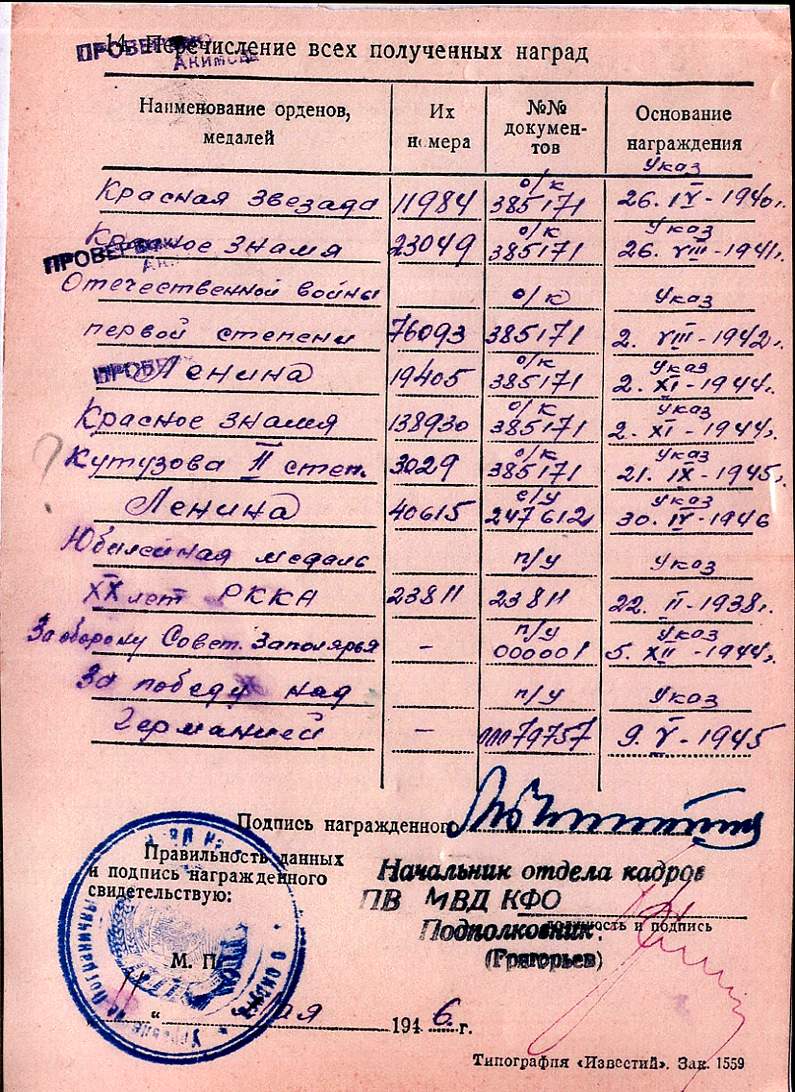 14. Перечисление всех полученных наград
ПРОВЕРЕНО
Акимова
Наименование орденов, медалей
Их номера
№№ документов
Основание награждения
Указ
о/к
Красная Звезада 11984 385171 26. IV - 1940г.
о/к Указ
Красное Знамя 23049 385171 26. VIII - 1941г.
ПРОВЕРЕНО
Отечественной войны о/к Указ
первой степени 76093 385171 2. VIII - 1942г.
о/к Указ
ПРОВЕ
Ленина 19405 385171 2. XI - 1944г.
о/к Указ
Красное Знамя 138930 385171 2. XI - 1944г.
о/к Указ
Кутузова II степ. 3029 385171 21. IX - 1945г.
с/у Указ
Ленина 40615 247612 30. IV - 1946
Юбилейная медаль п/у Указ
XX лет РККА 23811 23811 22. II - 1938г.
п/у Указ
За оборону Совет. Заполярья - 000001 5. XII - 1944г.
За победу над п/у Указ
Германией - 0079757 9. V - 1945
Подпись награжденного
Правильность данных
и подпись награжденного
свидетельствую:
Начальник отдела кадров
ПВ МВД КФО
Подполковник
должность и подпись
(Григорьев)
М. П.
" " мая 1946 г.
Типография «Известий». Зак. 1559